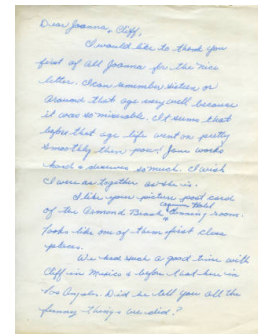 Dear Joanna & Cliff,
I would like to thank you
first of all Joanna for the nice
letter. I can remember sixteen or
around that age very well because
it was so miserable. It seems that
before that age life went on pretty
smoothly then pow! Jane works
hard & deserves so much. I wish
I were as together as she is.
I like your picture post card
of the Ormond Beach Dinning room.
Looks like one of them first class
places.
We had such a good time with
Cliff in Mexico & before that here in
Los Angeles. Did he tell you all the
funny things we did?